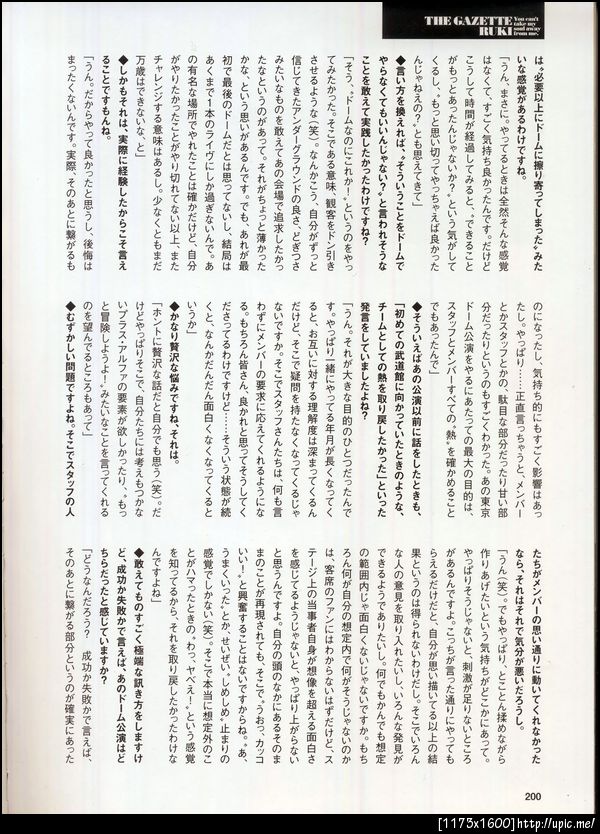 THE GAZETTE
RUKI
You can't
take my
soul away
from me.
は、“必要以上にドームに擦り寄ってしまった”みた
いな感覚があるわけですね。
「うん、まさに。やってるときは全然そんな感覚
はなくて、すごく気持ち良かったんです。だけど
こうして時間が経過してみると、“できること
がもっとあったんじゃないか？”という気がして
くるし、“もっと思い切ってやっちゃえば良かった
んじゃねえの？”とも思えてきて」
◆言い方を換えれば、“そういうことをドームで
やらなくてもいいんじゃない？”と言われそうな
ことを敢えて実践したかったわけですね？
「そう。“ドームなのにこれかー”というのをやっ
てみたかった。そこである意味、観客をドン引き
させるような（笑）。なんかこう、自分がずっと
信じてきたアンダーグラウンドの良さ、どぎつさ
みたいなものを敢えてあの会場で追求したかっ
たなというのがあって。それがちょっと薄かった
かな、という思いがあるんです。でも、あれが最
初で最後のドームだとは思ってないし、結局は
あくまで1本のライヴにしか過ぎないんで。あ
の有名な場所でやれたことは確かだけど、自分
がやりたかったことがやり切れてない以上、また
チャレンジする意味はあるし。少なくともまだ
万歳はできないな、と」
◆しかもそれは、実際に経験したからこそ言え
ることですもんね。
「うん。だからやって良かったと思うし、後悔は
まったくないんです。実際、そのあとに繋がるも
のになったし、気持ち的にもすごく影響はあっ
たし。やっぱり……正直言っちゃうと、メンバー
とかスタッフとかの、駄目な部分だったり甘い部
分だったりというのもすごくわかった。あの東京
ドーム公演をやるにあたっての最大の目的は、
スタッフとメンバーすべての“熱”を確かめること
でもあったんで」
◆そういえばあの公演以前に話をしたときも、
「初めての武道館に向かっていたときのような、
チームとしての熱を取り戻したかった」といった
発言をしていましたよね？
「うん。それが大きな目的のひとつだったんで
す。やっぱり一緒にやってる年月が長くなってく
ると、お互いに対する理解度は深まってくるん
だけど、そこで疑問を持たなくなってくるじゃ
ないですか。そこでスタッフさんたちは、何も言
わずにメンバーの要求に応えてくれるようにな
る。もちろん皆さん、良かれと思ってそうしてく
ださってるわけですけど……そういう状態が続
くと、なんかだんだん面白くなくなってくると
いうか」
◆かなり贅沢な悩みですね、それは。
「ホントに贅沢な話だと自分でも思う（笑）。だ
けどやっぱりそこで、自分たちには考えもつかな
いプラス・アルファの要素が欲しかったり、“もっ
と冒険しようよ！”みたいなことを言ってくれる
のを望んでるところもあって」
◆むずかしい問題ですよね。そこでスタッフの人
たちがメンバーの思い通りに動いてくれなかった
なら、それはそれで気分が悪いだろうし。
「うん（笑）。でもやっぱり、とことん揉めながら
作りあげたいという気持ちがどこかにあって。
やっぱりそうじゃないと、刺激が足りないところ
があるんですよ。こっちが言った通りにやっても
らえるだけだと、自分が思い描いてる以上の結
果というのは得られないわけだし。そこでいろん
な人の意見を取り入れたいし、いろんな発見が
できるようでありたいし。何でもかんでも想定
の範囲内じゃ面白くないじゃないですか。もち
ろん何が自分の想定内で何がそうじゃないのか
は、客席のファンにはわからないはずだけど、ス
テージ上の当事者自身が想像を超える面白さ
を感じてるようじゃないと、やっぱり上がらない
と思うんですよ。自分の頭のなかにあるそのま
まのことが再現されても、そこで“うおっ、カッコ
いい！”と興奮することはないですからね。“あ、
うまくいった”とか、せいぜい“しめしめ”止まりの
感覚でしかない（笑）。そこで本当に想定外のこ
とがハマったときの、“わっ、やべえ！”という感覚
を知ってるから、それを取り戻したかったわけな
んですよね」
◆敢えてものすごく極端な訊き方をしますけ
ど、成功か失敗かで言えば、あのドーム公演はど
ちらだったと感じていますか？
「どうなんだろう？　成功か失敗かで言えば、
そのあとに繋がる部分というのが確実にあった
200
[1173x1600]http://upic.me/